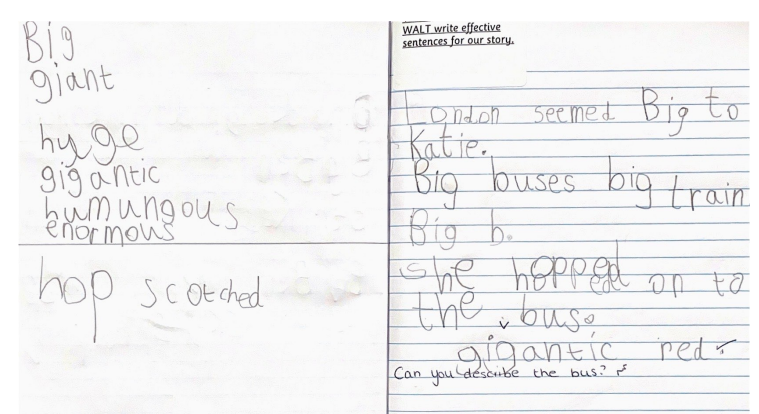 Big
giant
hyge
gigantic
humungous
enormous
hop scotched
WALT write effective
sentences for our story.
London seemed Big to
Katie.
Big buses big train
Big b.
She hopped on to
the bus.
gigantic red
Can you describe the bus?